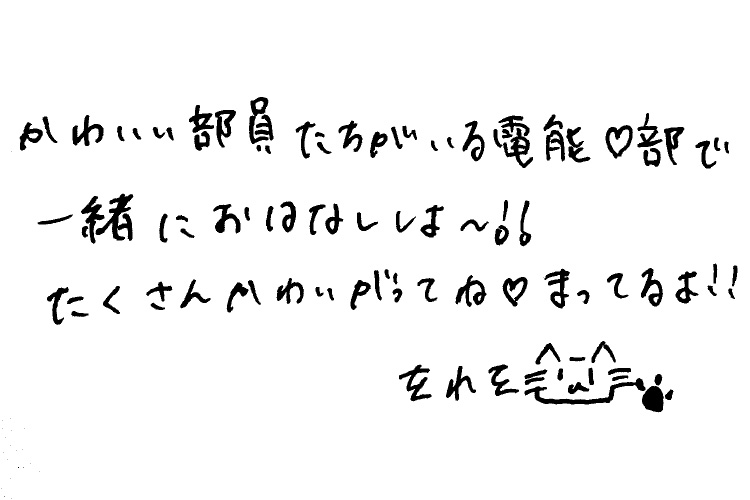 かわいい部員たちがいる電能♡部で
一緒におはなししよ〜!!
たくさんかわいがってね♡まってるよ!!
をれを